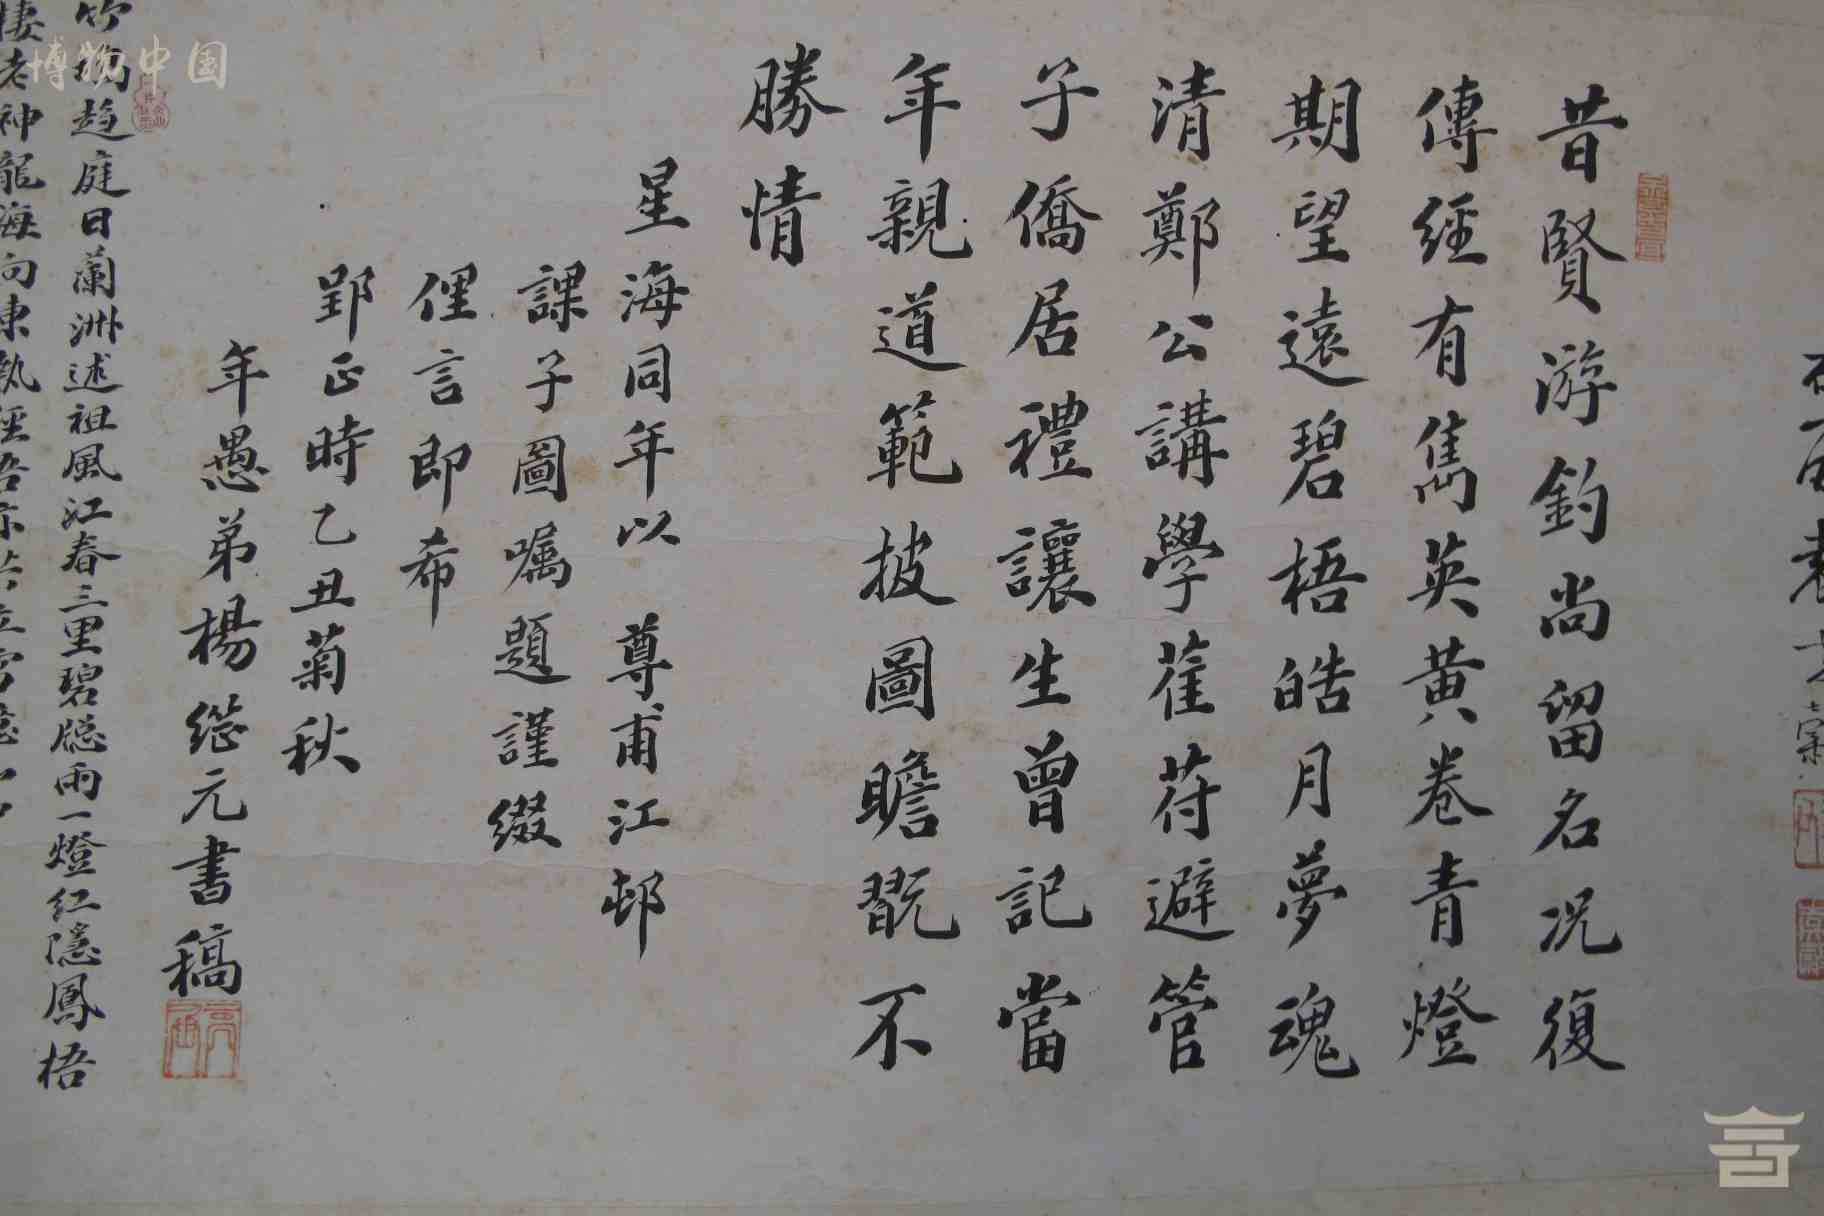 昔賢游釣尚留名况復
傳經有雋英黄卷青燈
期望遠碧梧皓月夢魂
清鄭公講學萑苻避管
子僑居禮讓生曾記當
年親道範披圖瞻翫不
勝情
星海同年以 尊甫江邨
課子圖嘱題謹綴
俚言即希
郢正時乙丑菊秋
年愚弟楊繼元書稿
趨庭日蘭洲述祖風江春三里碧隐雨一燈紅隱鳳梧
棲老神龍海向東執經吾
博物中国